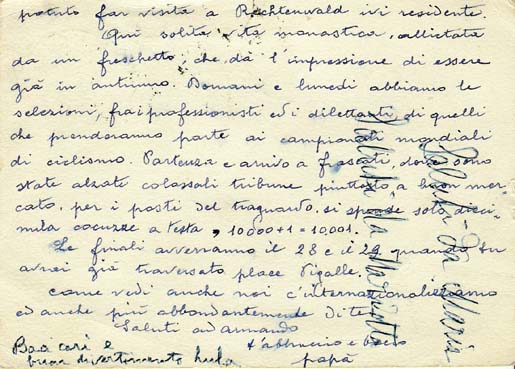 potuto far visita a Rechtenwald ivi residente.
Qui solita vita monastica, allietata
da un freschetto, che dà l'impressione di essere
già in autunno. Domani e lunedì abbiamo le
selezioni, fra i professionisti ed i dilettanti, di quelli
che prenderanno parte ai campionati mondiali
di ciclismo. Partenza e arrivo a Frascati, dove sono
state alzate colossali tribune piuttosto a buon mer-
cato. per i posti del traguardo. si spende solo dieci-
mila cocuzze a testa, 10000+1=10,001.
Le finali avverranno il 28 e il 29 quando tu
avrai già traversato place Pigalle.
Come vedi anche noi c'internazionalizziamo
ed anche più abbondantemente di te.
Saluti ad Armando
t'abbraccio e bacio
papà
Baci cari e
buon divertimento
Saluti da Maria